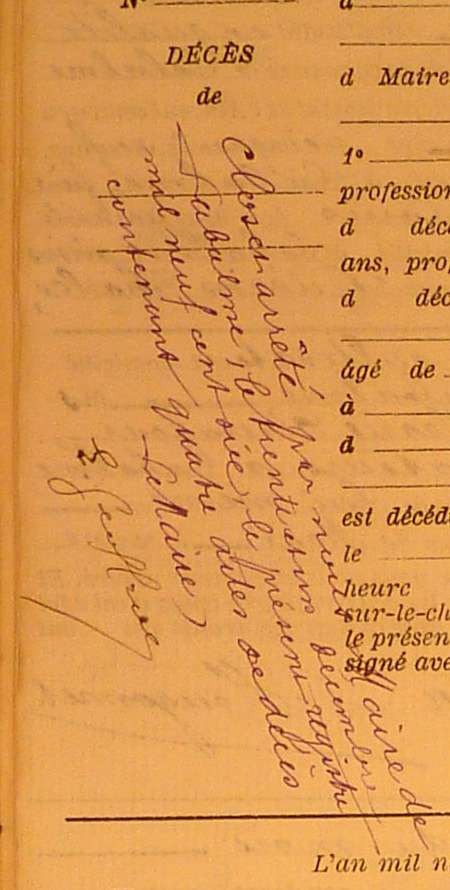 N°
DÉCÈS
de
Clos et arrêté par nous Maire de
Labalme, le trente et un décembre
mil neuf cent six, le présent registre
contenant quatre actes de décès
Le Maire,
d
d Maire
1°
profession
d déc
ans, pro
d déc
âgé de
à
d
est décéd
le
heure
sur-le-ch
le présen
signé ave
L'an mil n